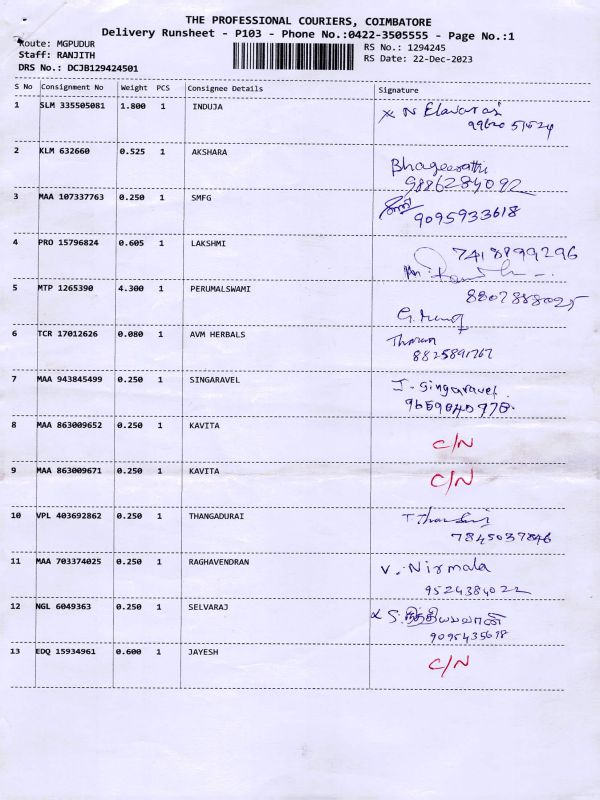 THE PROFESSIONAL COURIERS, COIMBATORE
Delivery Runsheet - P103 - Phone No.:0422-3505555 - Page No.:1
Route: MGPUDUR
RS No.: 1294245
Staff: RANJITH
RS Date: 22-Dec-2023
DRS No.: DCJB129424501
S No Consignment No Weight PCS Consignee Details Signature
1 SLM 335505081 1.800 1 INDUJA x N Elavarasi
2 KLM 632660 0.525 1 AKSHARA Bhageerathi
9886284092
3 MAA 107337763 0.250 1 SMFG
9095933618
4 PRO 15796824 0.605 1 LAKSHMI 7418899296
5 MTP 1265390 4.300 1 PERUMALSWAMI 8807888025
6 TCR 17012626 0.080 1 AVM HERBALS
8825891767
7 MAA 943845499 0.250 1 SINGARAVEL J. Singaravel.
9659840970.
8 MAA 863009652 0.250 1 KAVITA C/N
9 MAA 863009671 0.250 1 KAVITA C/N
10 VPL 403692862 0.250 1 THANGADURAI
7845037846
11 MAA 703374025 0.250 1 RAGHAVENDRAN V. Nirmala
9524384022
12 NGL 6049363 0.250 1 SELVARAJ x S.
9095435678
13 EDQ 15934961 0.600 1 JAYESH C/N